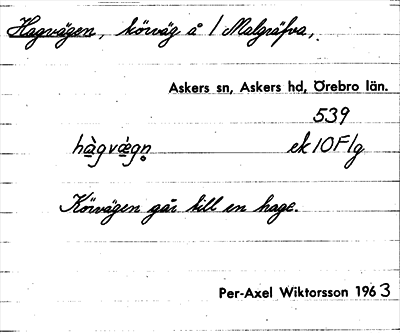 Hagvägen, körväg å 1 Malgräfva,
Askers sn, Askers hd, Örebro län.
539
hàgvǽgn̥ ek 10F1g
Körvägen går till en hage.
Per-Axel Wiktorsson 1963